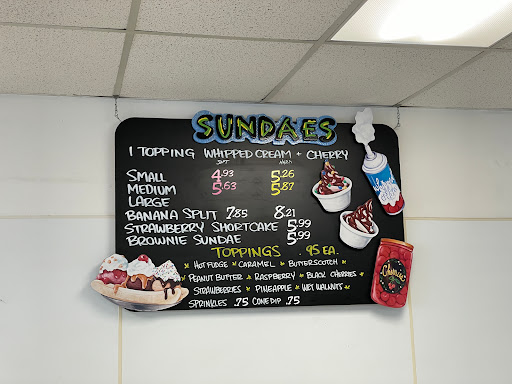 SUNDAES
1 TOPPING WHIPPED CREAM + CHERRY
SMALL 4.93 5.26
MEDIUM 5.63 5.87
LARGE
BANANA SPLIT 7.85 8.21
STRAWBERRY SHORTCAKE 5.99
BROWNIE SUNDAE 5.99
TOPPINGS .95 EA.
HOT FUDGE * CARAMEL * BUTTERSCOTCH
PEANUT BUTTER * RASPBERRY * BLACK CHERRIES
STRAWBERRIES * PINEAPPLE * WET WALNUTS
SPRINKLES .75 CONE DIP .75
Cherries